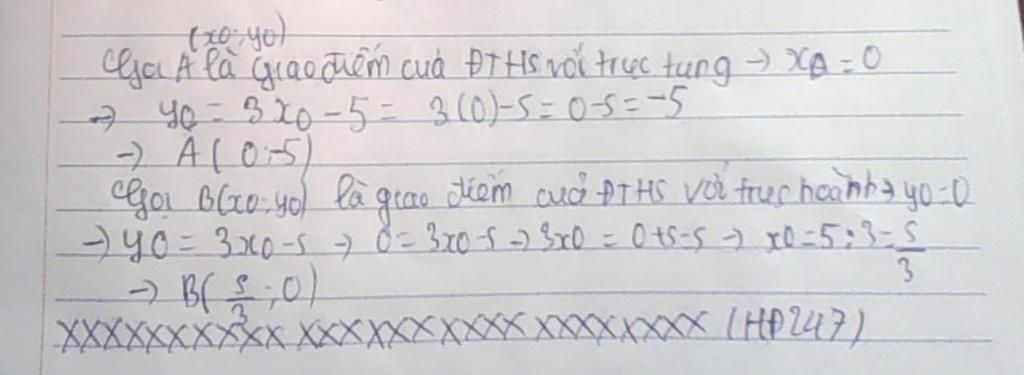 (x0;y0)
Gọi A là giao điểm của ĐTHS với trục tung → x0 = 0
→ y0 = 3x0 - 5 = 3(0) - 5 = 0 - 5 = -5
→ A(0;-5)
Gọi B(x0;y0) là giao điểm của ĐTHS với trục hoành → y0 = 0
→ y0 = 3x0 - 5 → 0 = 3x0 - 5 → 3x0 = 0 + 5 = 5 → x0 = 5 : 3 = 5/3
→ B(5/3;0)
XXXXXXXXXX XXXXXXXXXX XXXXXXXX (HĐ247)